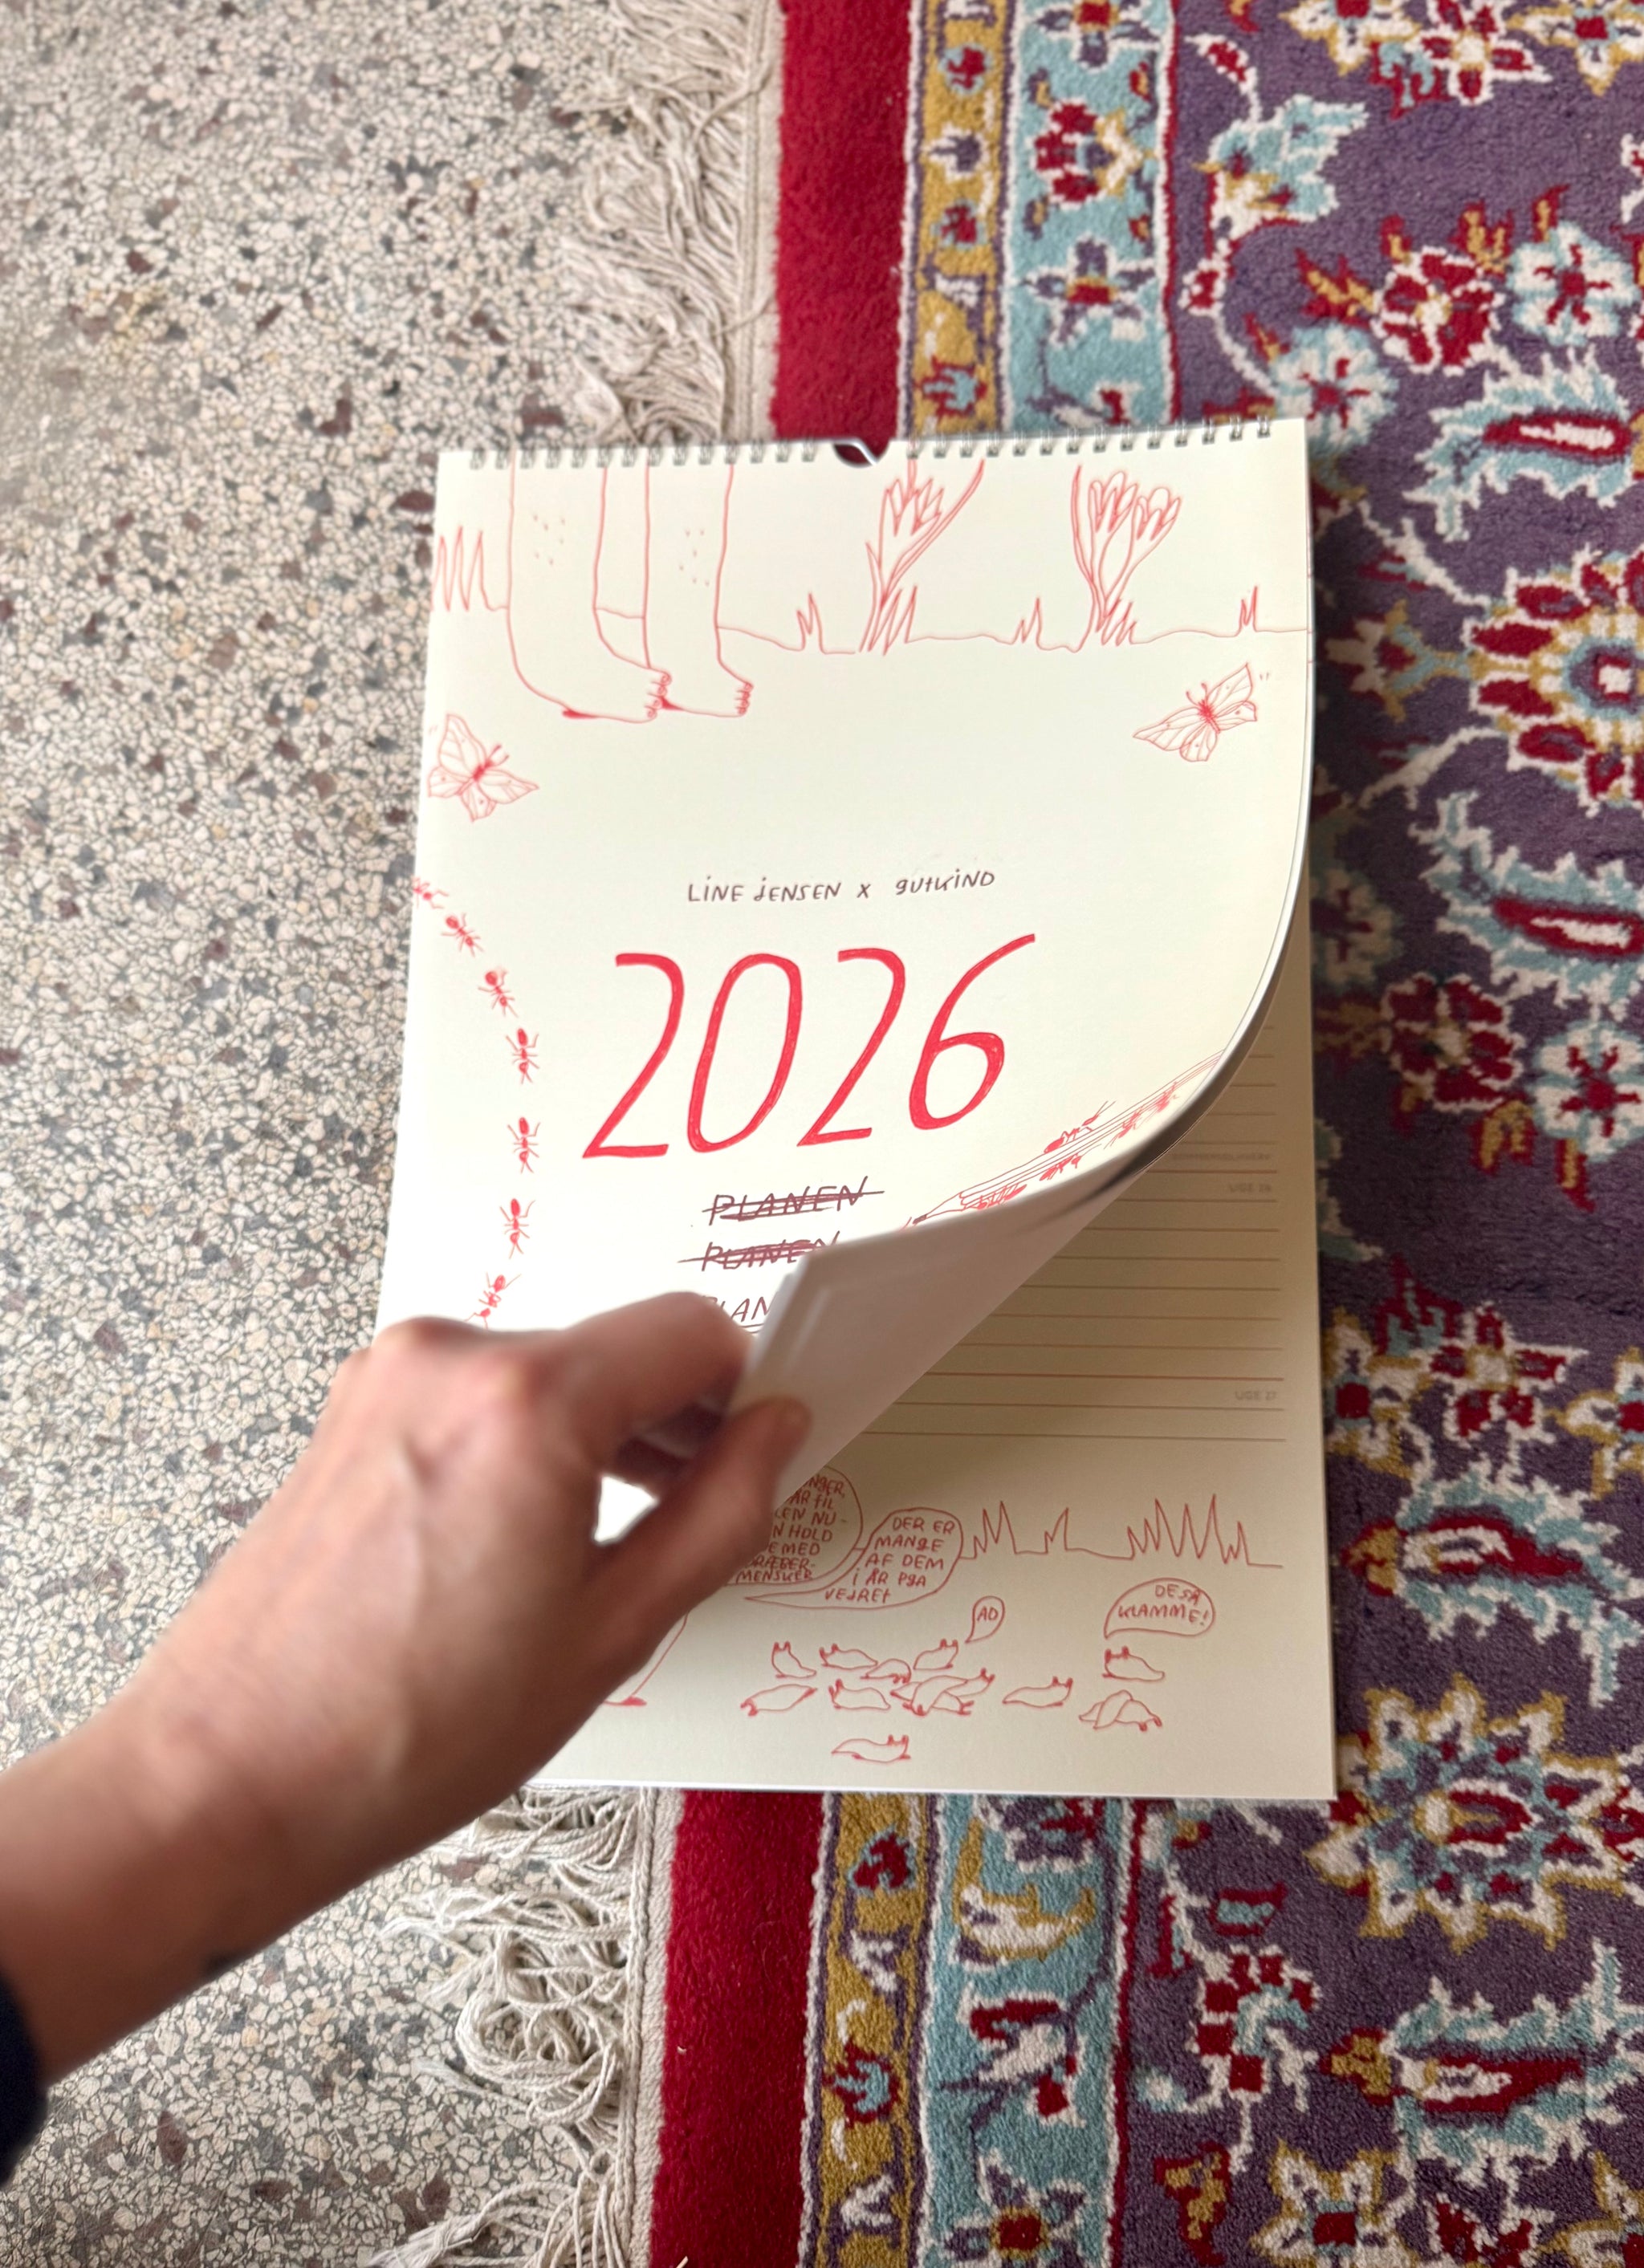 LINE JENSEN X GUTKIND
2026
PLANEN
PLANEN
PLAN
UGE 26
UGE 27
ÅR TIL
HOLD
MED
MENSKER
DER ER
MANGE
AF DEM
I ÅR PGA
VEJRET
AD
DE SÅ
KLAMME!